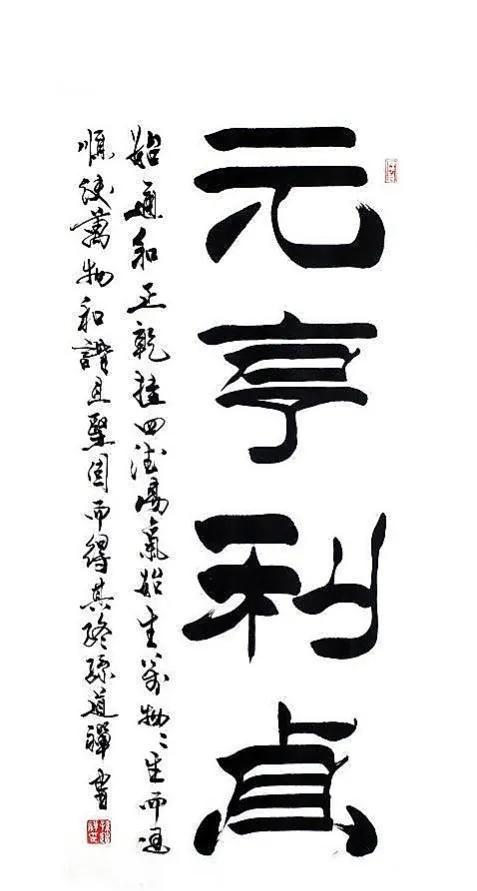 元亨利貞
始通和正乾挂四德陽氣始生萬物〻生而通
順使萬物和諧且堅固而得其終孫道禪書